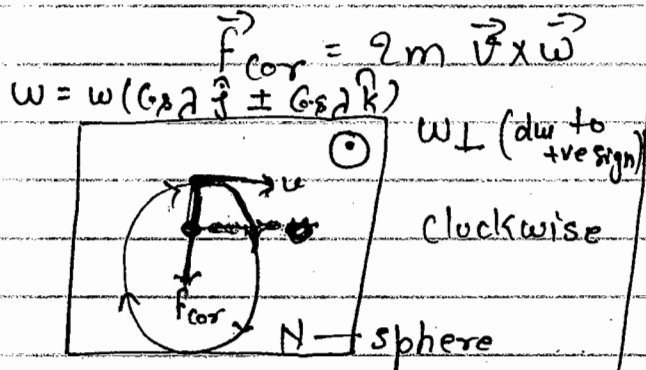 f⃗cor = 2m v⃗ × ω⃗
ω = ω(Cosλ ĵ ± Cosλ k̂)
ω⊥ (due to +ve sign)
v
Clockwise
fcor
N — sphere